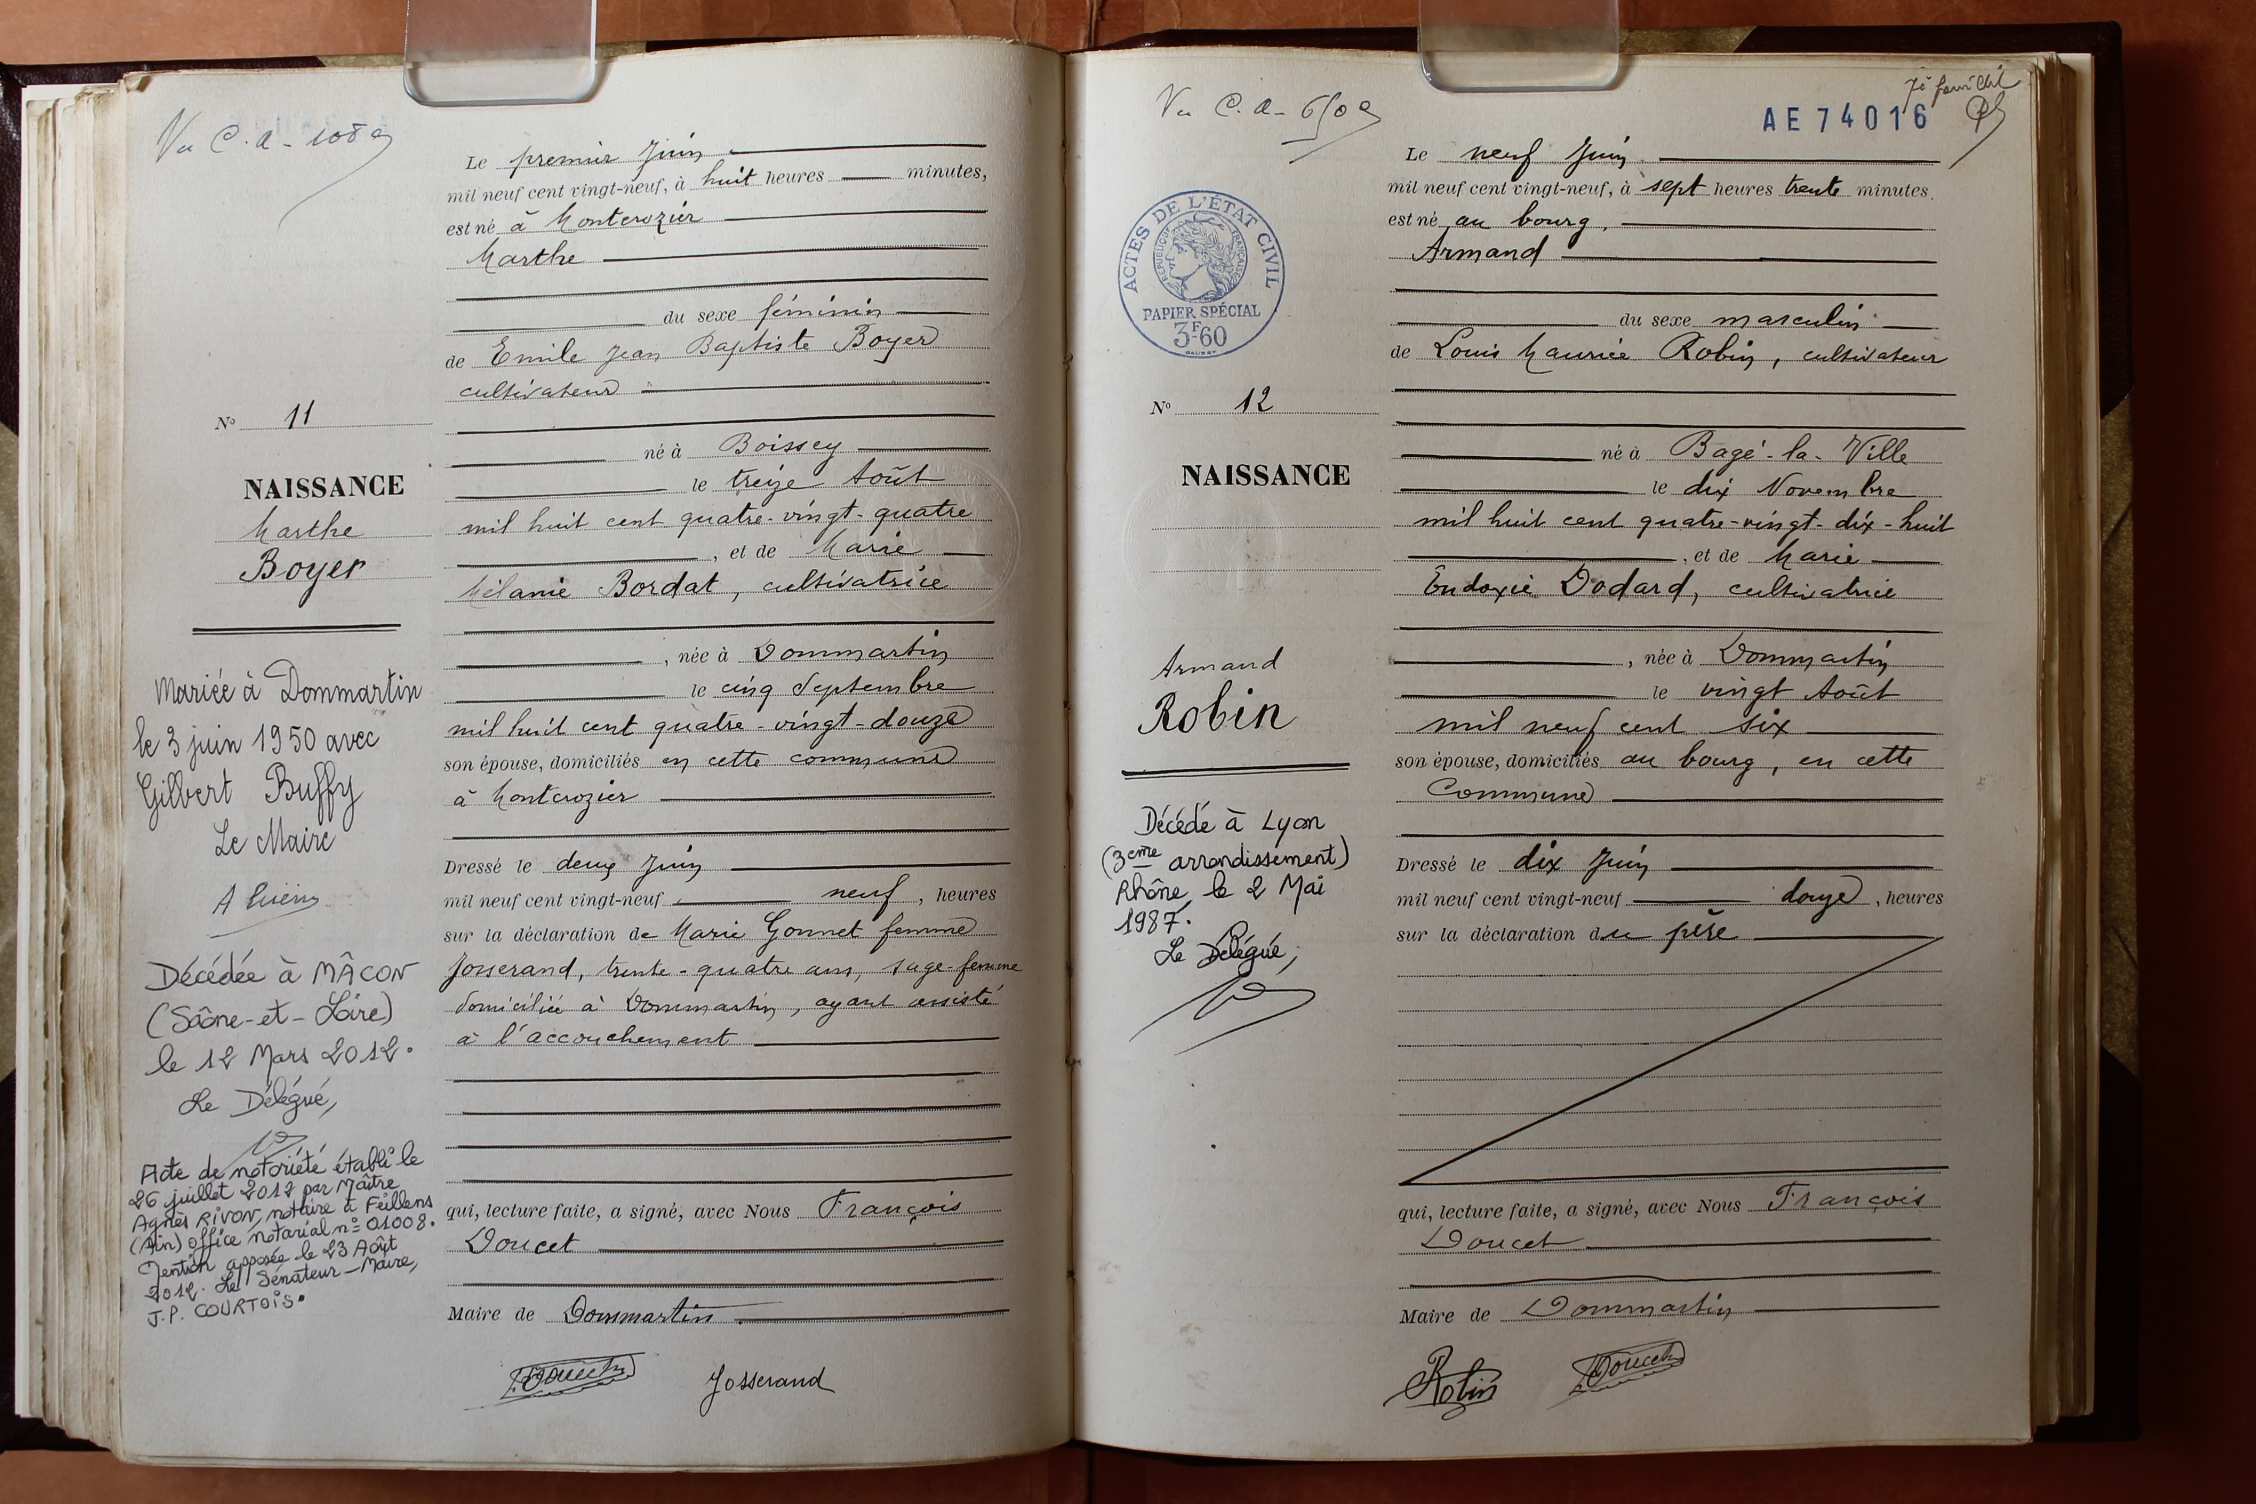 Vu C.A-
N° 11
NAISSANCE
Marthe
Boyer
Mariée à Dommartin
le 3 juin 1950 avec
Gilbert Buffy
Le Maire
Décédée à MÂCON
(Saône-et-Loire)
le 12 Mars 2012.
Le Délégué,
Acte de notoriété établi le
26 juillet 2012 par Maître
Agnès RIVON, notaire à Feillens
(Ain) office notarial n° 01008.
Mention apposée le 23 Août
2012. Le Sénateur-Maire,
J.P. COURTOIS.
Le premier Juin
mil neuf cent vingt-neuf, à huit heures minutes,
est né à Montcrozier
Marthe
du sexe féminin
de Emile Jean Baptiste Boyer
cultivateur
né à Boissey
le treize Août
mil huit cent quatre-vingt-quatre
, et de Marie
Mélanie Bordat, cultivatrice
, née à Dommartin
le cinq Septembre
mil huit cent quatre-vingt-douze
son épouse, domiciliés en cette commune
à Montcrozier
Dressé le deux Juin
mil neuf cent vingt-neuf neuf, heures
sur la déclaration de Marie Gonnet femme
Josserand, trente-quatre ans, sage-femme
domiciliée à Dommartin, ayant assisté
à l'accouchement
qui, lecture faite, a signé, avec Nous François
Doucet
Maire de Dommartin
Doucet Josserand
Vu C.A-
AE 74016
ACTES DE L'ÉTAT CIVIL
RÉPUBLIQUE FRANÇAISE
PAPIER SPÉCIAL
3F60
N° 12
NAISSANCE
Armand
Robin
Décédé à Lyon
(3ème arrondissement)
Rhône, le 2 Mai
1987.
Le Délégué,
Le neuf Juin
mil neuf cent vingt-neuf, à sept heures trente minutes.
est né au bourg,
Armand
du sexe masculin
de Louis Maurice Robin, cultivateur
né à Bagé-la-Ville
le dix Novembre
mil huit cent quatre-vingt-dix-huit
, et de Marie
Eudoxie Dodard, cultivatrice
, née à Dommartin
le vingt Août
mil neuf cent six
son épouse, domiciliés au bourg, en cette
Commune
Dressé le dix Juin
mil neuf cent vingt-neuf douze, heures
sur la déclaration du père
qui, lecture faite, a signé, avec Nous François
Doucet
Maire de Dommartin
Robin Doucet